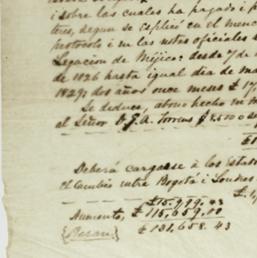 i sobre las cuales ha pagado i p
teres, segun se esplicó en el menc
protocolo i en las notas oficiales
Legacion de Méjico: desde 7 de
de 1826 hasta igual dia de ma
1829; dos años once meses £ 17
Se deduce, abono hecho en m
al Señor D. J. A. Torrens £ 3.500
Deberá cargarse à los Estad
el cambio entre Bogotá i Londres
£15.999.43
Aumento, £ 115,659.00
£ 131,658.43